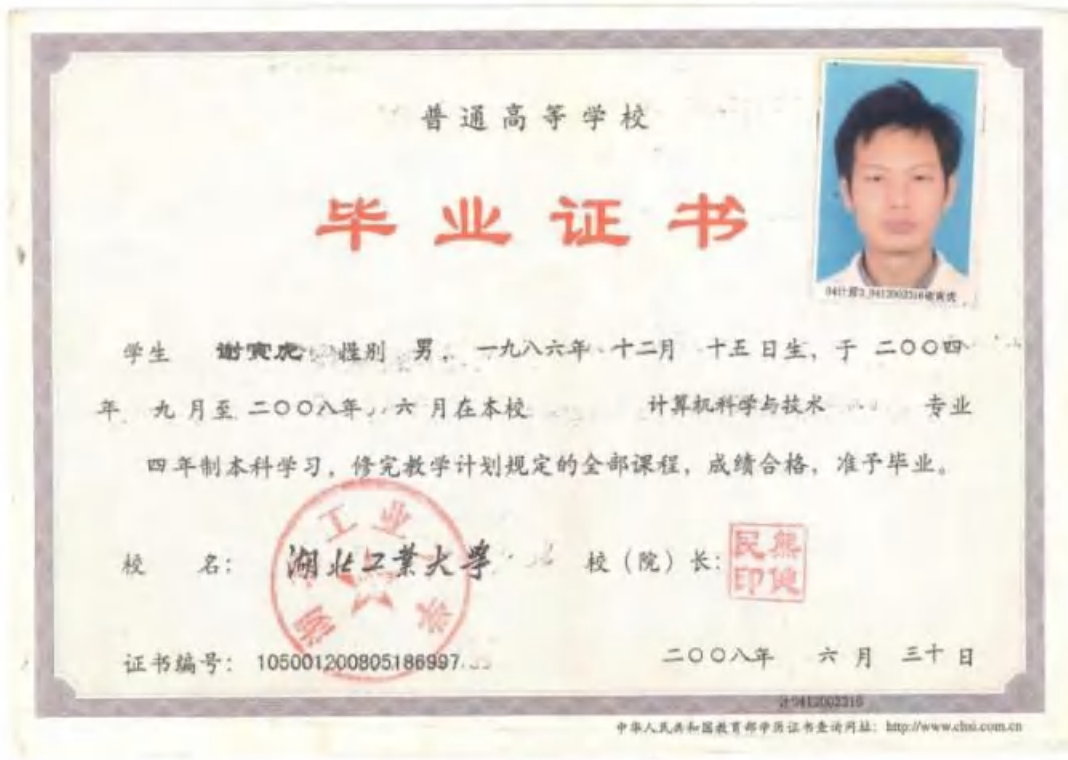 普通高等学校
毕业证书
04计算3_0412002316谢寅虎
学生 谢寅虎 性别 男， 一九八六年 十二月 十五日生，于 二〇〇四
年 九 月至 二〇〇八年 六 月在本校 计算机科学与技术 专业
四年制本科学习，修完教学计划规定的全部课程，成绩合格，准予毕业。
校 名： 湖北工業大學 校（院）长： 熊健民印
湖北工业大学
证书编号： 105001200805186997 二〇〇八年 六 月 三十 日
0412002316
中华人民共和国教育部学历证书查询网址：http://www.chsi.com.cn